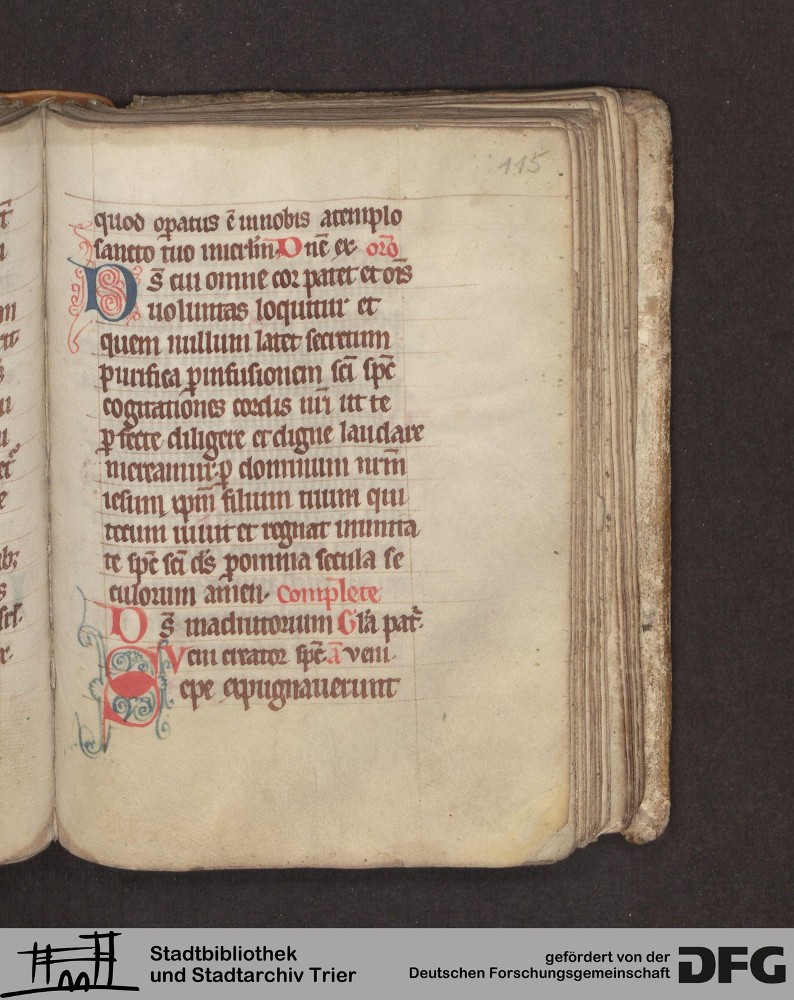 115
quod opatus ē innobis atemplo
sancto tuo inierłm D nē ex orō
D s̄ cui omne cor patet et oīs
uoluntas loquitur et
quem nullum latet secretum
purifica ꝑ infusionem sc̄i sp̄c
cogitationes cordis nr̄i ut te
ꝑfecte diligere et digne laudare
mereamur ꝑ dominum nr̄m
iesum xp̄m filium tuum qui
tecum uiuit et regnat inunita
te sp̄c sc̄i ds̄ ꝑ omnia secula se
culorum amen complete
D s̄ inadiutorium Glā pat̄
Veni creator sp̄c a veni
Sepe expugnauerunt
Stadtbibliothek
und Stadtarchiv Trier
gefördert von der
Deutschen Forschungsgemeinschaft
DFG